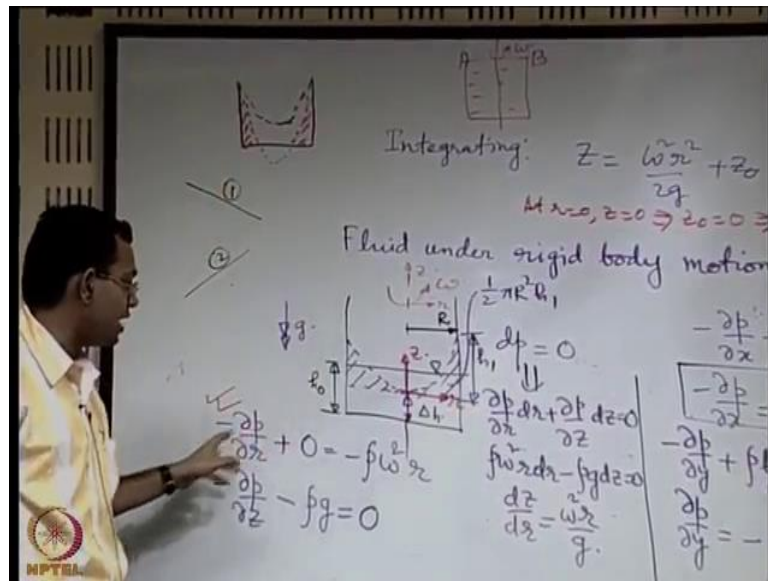 A ω B
Integrating: z = ω²r²/2g + z₀
At r=0, z=0 ⇒ z₀=0 ⇒
①
②
Fluid under rigid body motion
z ω
r
½πR²h₁
R
g.
h₀
z.
h₁
r
Δh
dp = 0
⇓
∂p/∂r dr + ∂p/∂z dz=0
ρω²rdr - ρgdz=0
dz/dr = ω²r/g.
-∂p/∂r + 0 = -ρω²r
-∂p/∂z - ρg = 0
-∂p/∂x
-∂p/∂x =
-∂p/∂y + ρ
∂p/∂y = -
NPTEL